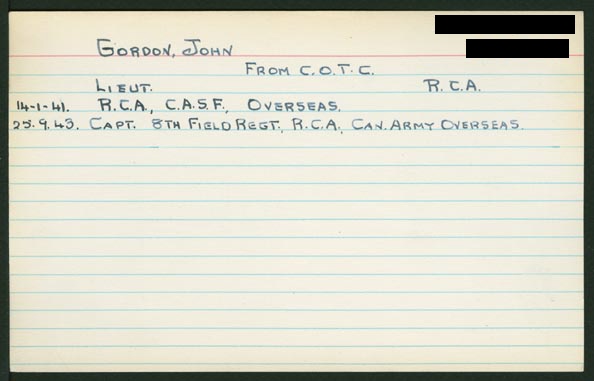 GORDON, JOHN
FROM C.O.T.C.
LIEUT. R.C.A.
14-1-41. R.C.A., C.A.S.F., OVERSEAS.
25.9.43. CAPT. 8TH FIELD REGT., R.C.A., CAN. ARMY OVERSEAS.